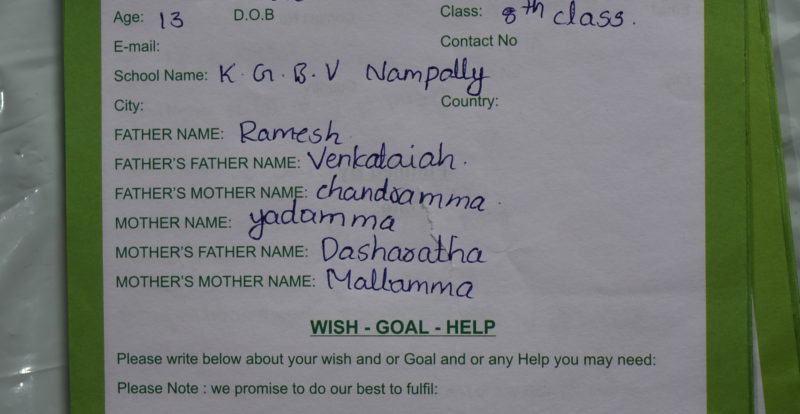 Age: 13 D.O.B Class: 8th class.
E-mail: Contact No
School Name: K.G.B.V Nampally
City: Country:
FATHER NAME: Ramesh
FATHER'S FATHER NAME: Venkataiah.
FATHER'S MOTHER NAME: chandramma.
MOTHER NAME: yadamma
MOTHER'S FATHER NAME: Dasharatha
MOTHER'S MOTHER NAME: Mallamma
WISH - GOAL - HELP
Please write below about your wish and or Goal and or any Help you may need:
Please Note : we promise to do our best to fulfil: